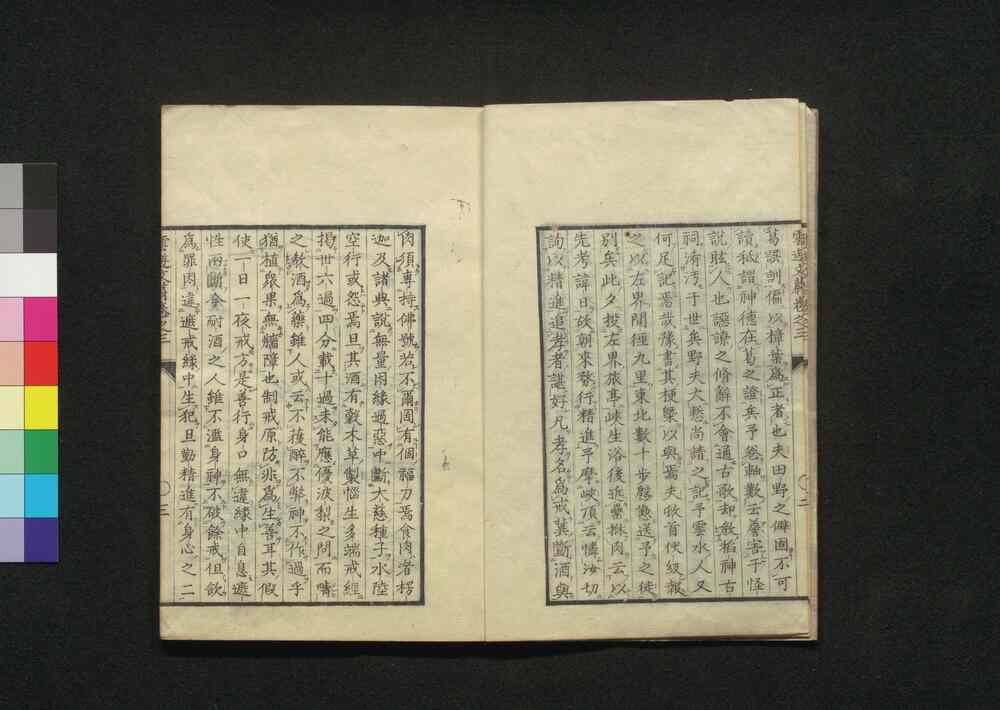 葛誤訓傷以樟葉爲正者也夫田野之僻固不可
讀秖謂神德在葛之證兵予卷軸數云魯害于怪
說眩人也謳謗之脩辭不會通古歌却敘搯神古
祠有汚于世兵野夫大愁尚請之記予雲水人又
何足記焉哉豫書其梗槩以與焉夫攷首伏級報
之以左界開徑九里東北數十步慇懃送予之徒
別矣此夕拔左界旅亭峽生浴後返疊牀肉云以
先考諱日故朝來奉行精進予摩峽頂云憐汝切
訽以精進追孝者諶好凡孝名爲戒葉斷酒與
肉須專持佛號若不爾固有個福力焉食肉者楞
迦及諸典說無量因緣過惡中斷大慈種子水陸
空行或怨焉且其酒有穀木草製惱生多端戒經
揭卅六過四分載十過未能應優波梨之問而疇
之敖酒爲藥錐人或云不獲醉不弊神不作過乎
猶植衆果無艢障也制戒原防非爲生善耳其假
使一日一夜戒方是善行身口無違緣中自息遮
性兩斷矣耐酒之人錐不濫身神不破餘戒但飲
爲罪肉違遮戒緣中生犯且勤精進有身心之二